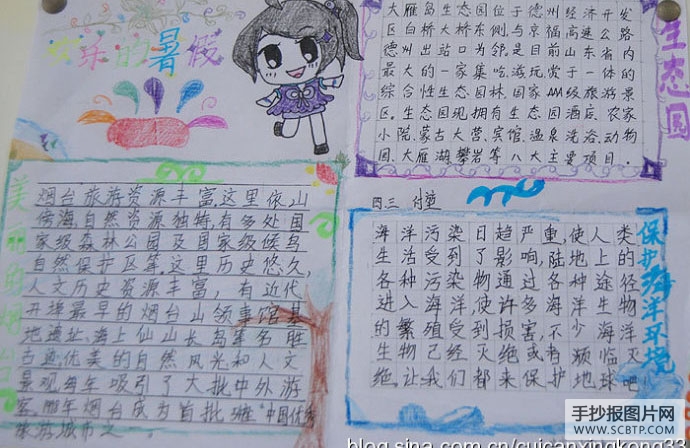 快乐的暑假
大雁岛生态园位于德州经济开发
区白桥大桥东侧,与京福高速公路
德州出站口为邻,是目前山东省内
最大的一家集吃、游、玩、赏于一体的
综合性生态园林,国家AAA级旅游景
区。生态园现拥有生态园酒店、农家
小院、蒙古大营、宾馆、温泉洗浴、动物
园、大雁湖、攀岩等八大主要项目。
生态园
美丽的烟台
烟台旅游资源丰富,这里依山
傍海,自然资源独特,有多处国
家级森林公园及国家级候鸟
自然保护区等。这里历史悠久,
人文历史资源丰富,有近代
开埠最早的烟台山领事馆基
地遗址、海上仙山长岛著名胜
古迹,优美的自然风光和人文
景观每年吸引了大批中外游
客,那年烟台成为首批"中国优秀
旅游城市之一。
四三
海洋污染日趋严重,使人类的
生活受到了影响,陆地上的
各种污染物通过各种途径
进入海洋,使许多海洋生物
的繁殖受到损害,不少海洋
生物已经灭绝或有濒临灭
绝,让我们都来保护地球吧
保护海洋环境
手抄报图片网
WWW.SCBTP.COM
blog.sina.com.cn/cuicanxingkong33